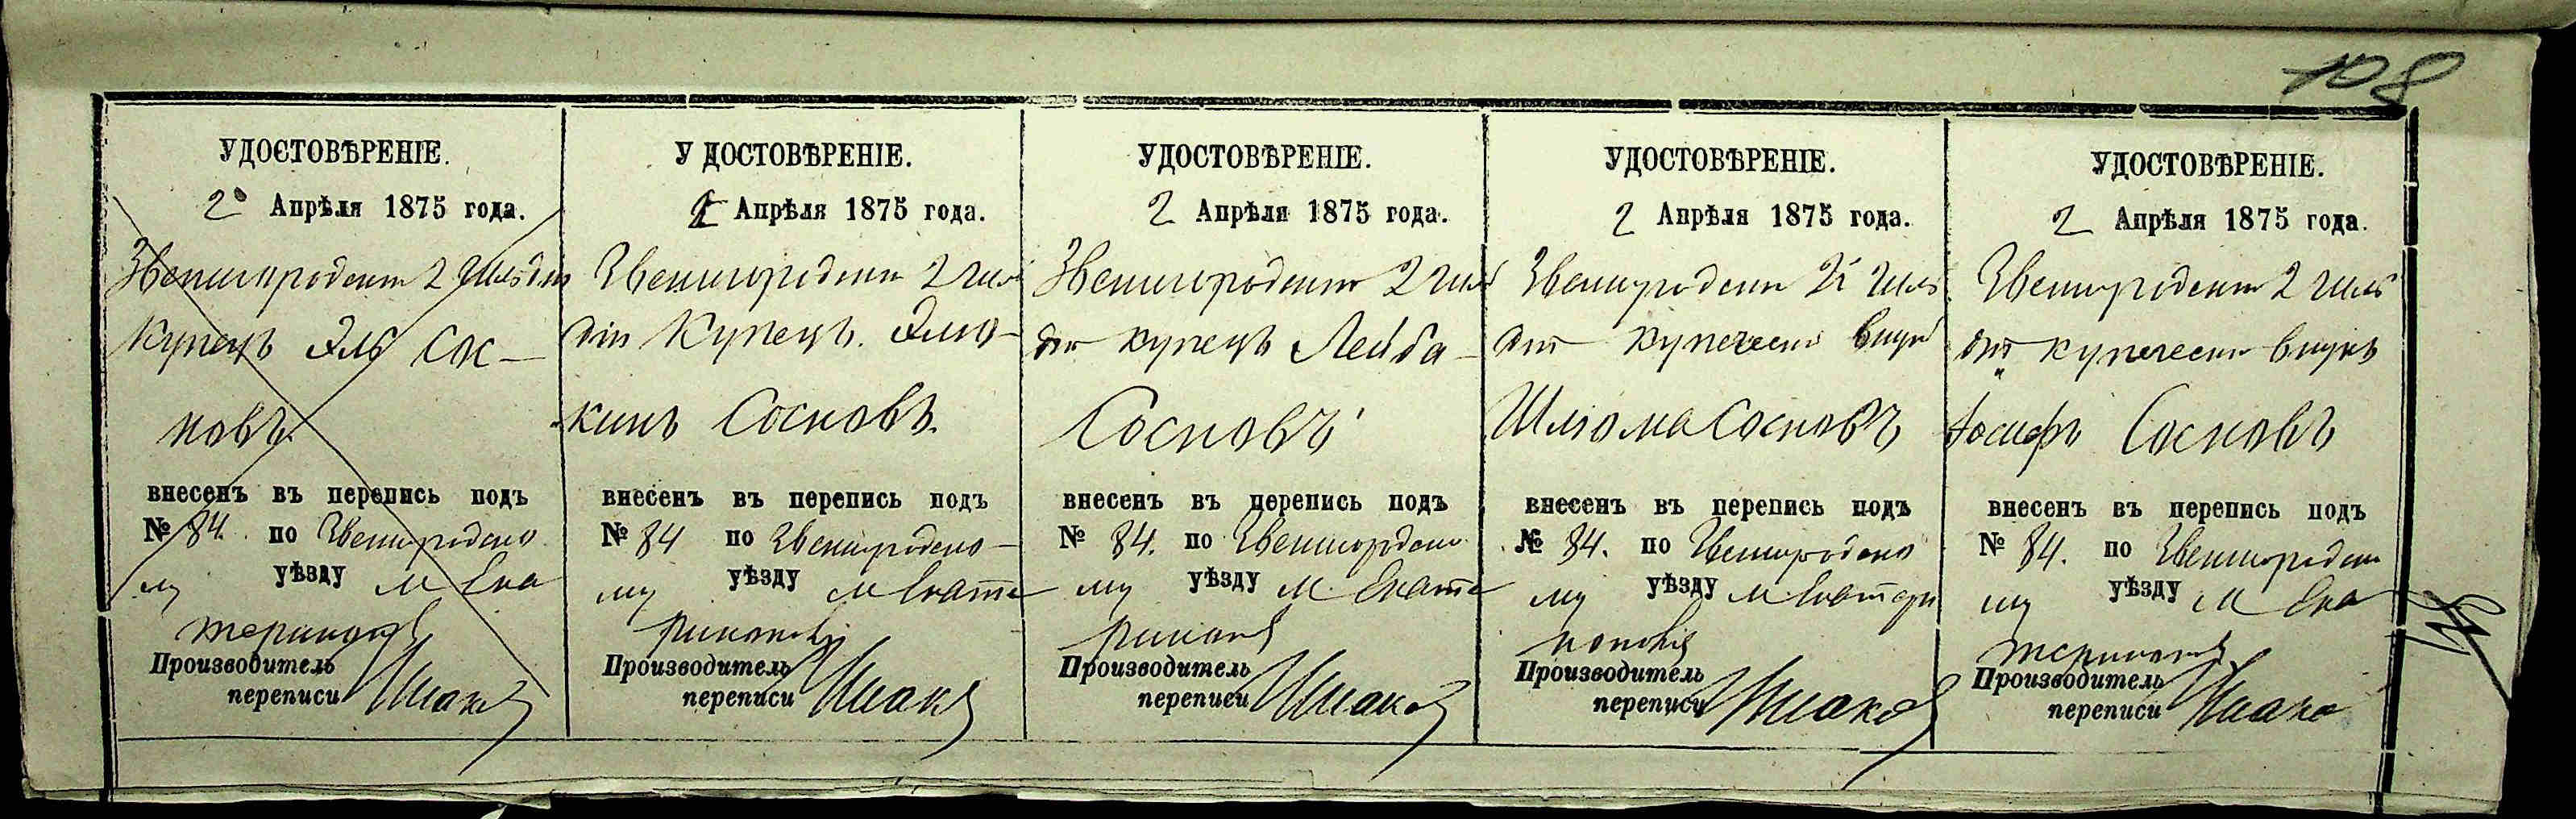 108
УДОСТОВѢРЕНІЕ.
2 Апрѣля 1875 года.
Звенигородскій 2 гильдіи
Купецъ Эль Сос-
новъ.
внесенъ въ перепись подъ
№ 84. по Звенигородско
му уѣзду м Ека
теринополь
Производитель
переписи
УДОСТОВѢРЕНІЕ.
2 Апрѣля 1875 года.
Звенигородскій 2 гиль
діи Купецъ. Элио-
кинъ Сосновъ.
внесенъ въ перепись подъ
№ 84 по Звенигородско-
му уѣзду м Екате
ринополь
Производитель
переписи
УДОСТОВѢРЕНІЕ.
2 Апрѣля 1875 года.
Звенигородскій 2 гиль
діи купецъ Лейба-
Сосновъ
внесенъ въ перепись подъ
№ 84. по Звенигородско
му уѣзду м. Екате
ринополь
Производитель
переписи
УДОСТОВѢРЕНІЕ.
2 Апрѣля 1875 года.
Звенигородскій 2й гиль
діи купеческій внукъ
Шлиома Сосновъ
внесенъ въ перепись подъ
№ 84. по Звенигородско
му уѣзду м Екатери
нополь
Производитель
переписи
УДОСТОВѢРЕНІЕ.
2 Апрѣля 1875 года.
Звенигородскій 2 гиль
діи купеческій внукъ
Іосифъ Сосновъ
внесенъ въ перепись подъ
№ 84. по Звенигородско
му уѣзду м Ека
теринополь
Производитель
переписи